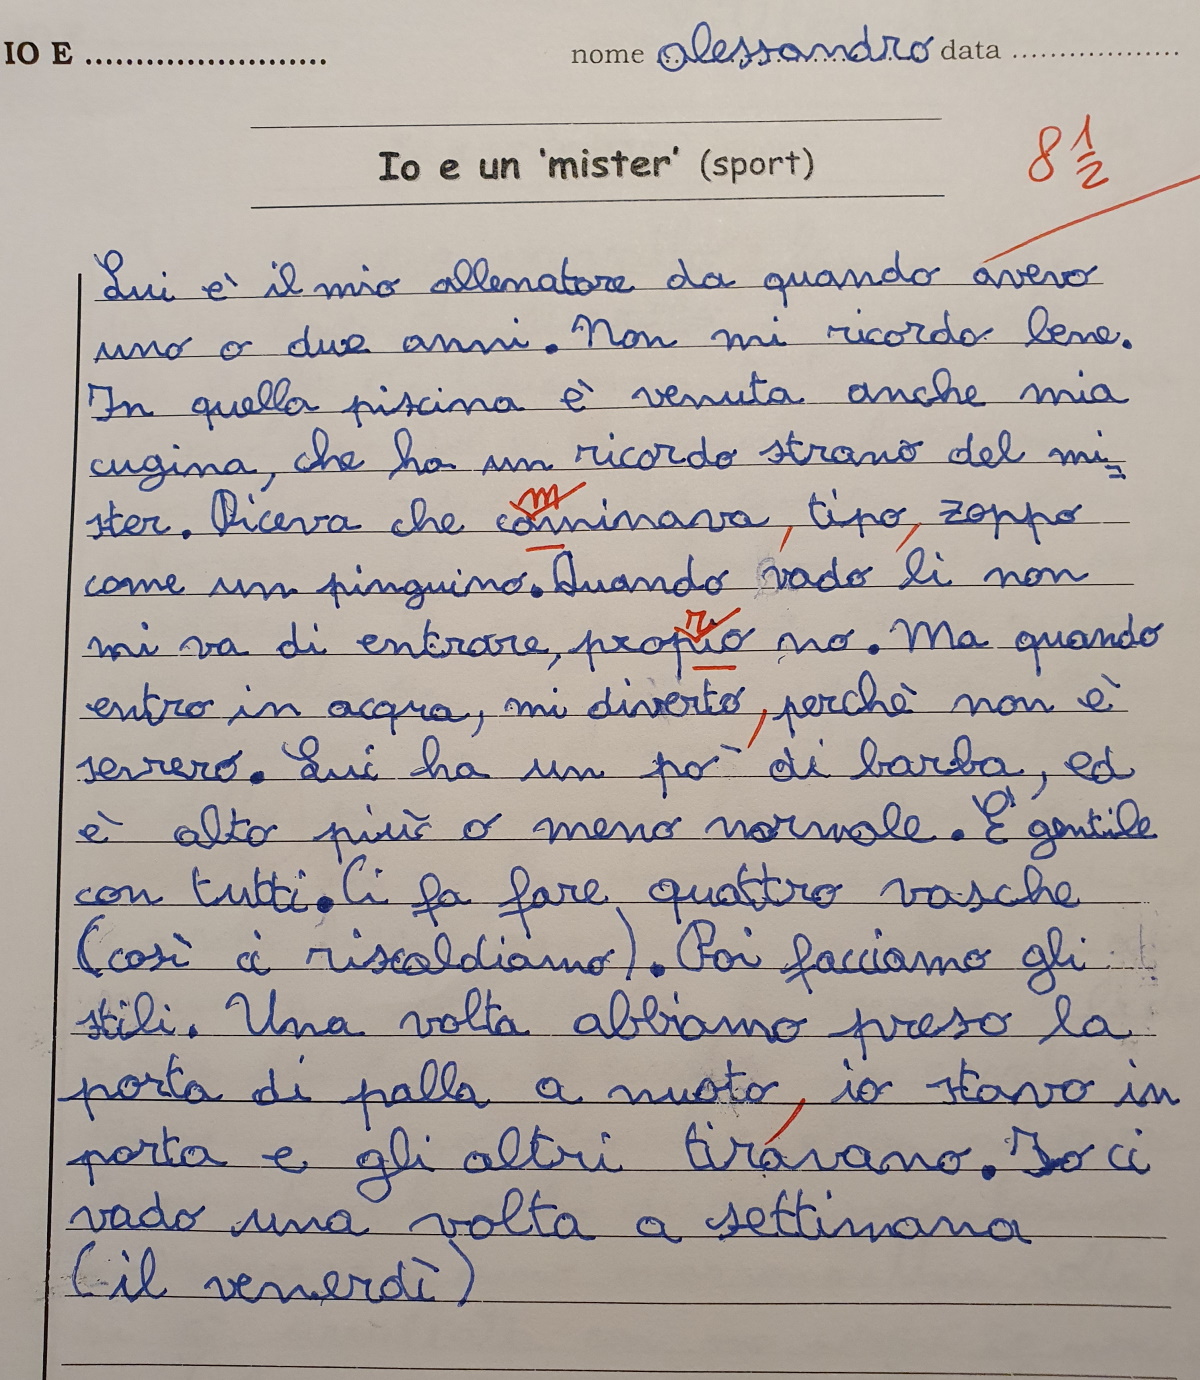 IO E ........................ nome alessandro data ..................
Io e un 'mister' (sport)
8 1/2
Lui è il mio allenatore da quando avevo
uno o due anni. Non mi ricordo bene.
In quella piscina è venuta anche mia
cugina, che ha un ricordo strano del mi=
m
ster. Diceva che caminava, tipo, zoppo
come un pinguino. Quando vado li non
r
mi va di entrare, propio no. Ma quando
entro in acqua, mi diverto, perchè non è
severo. Lui ha un po' di barba, ed
è alto più o meno normale. È gentile
con tutti. Ci fa fare quattro vasche
(così ci riscaldiamo). Poi facciamo gli
stili. Una volta abbiamo preso la
porta di palla a nuoto, io stavo in
porta e gli altri tiravano. Io ci
vado una volta a settimana
(il venerdì)